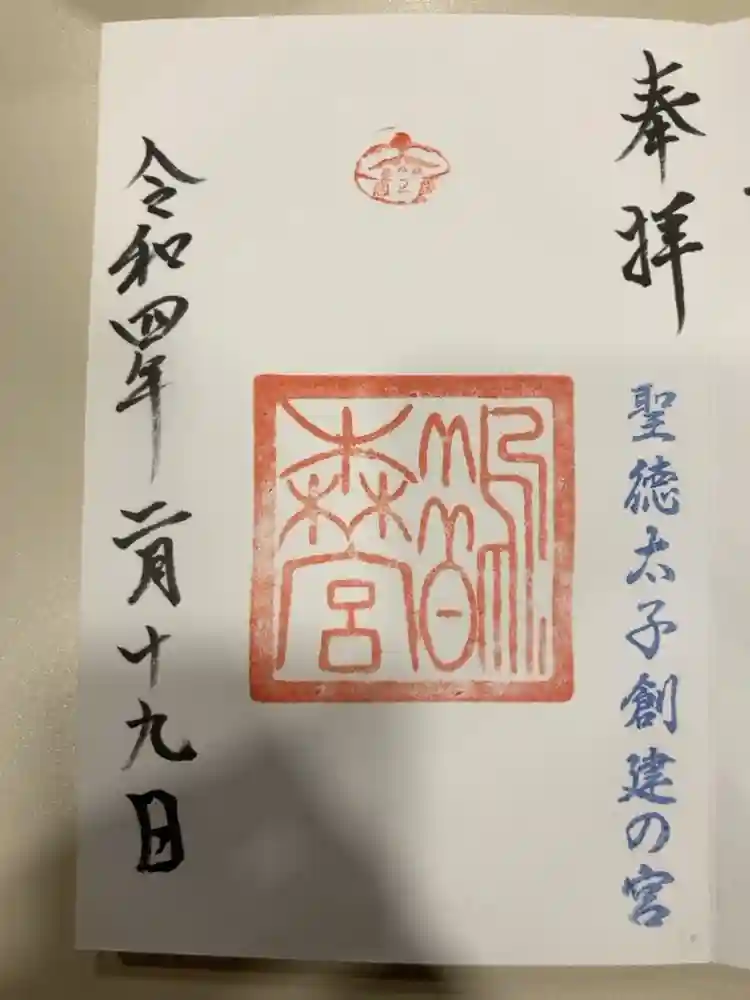 奉拝
聖徳太子創建の宮
鵲
森宮
令和四年二月十九日